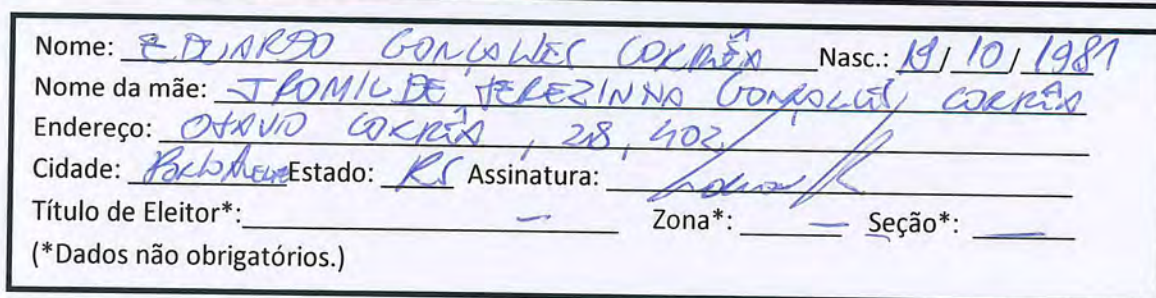 Nome: EDUARDO GONÇALVES CORRÊA Nasc.: 19/10/1981
Nome da mãe: IROMILDE TEREZINHA GONÇALVES CORRÊA
Endereço: OTAVIO CORRÊA, 28, 402
Cidade: Porto Alegre Estado: RS Assinatura:
Título de Eleitor*: — Zona*: — Seção*: —
(*Dados não obrigatórios.)